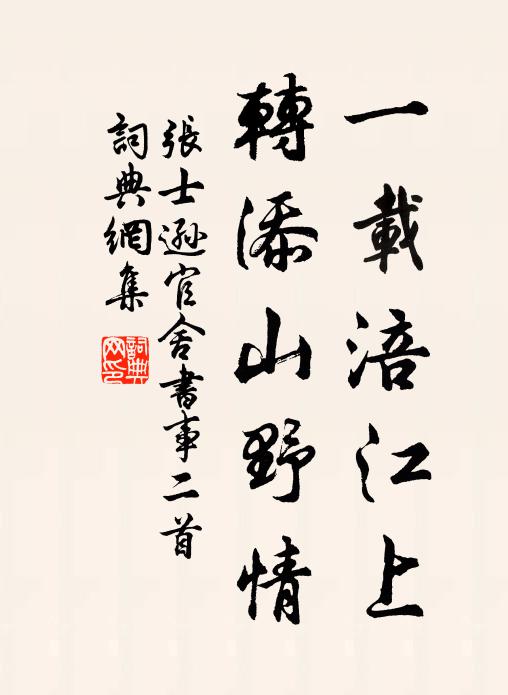 一載涪江上
轉添山野情
張士遜官舍書事二首
詞典網集
詞典
网印